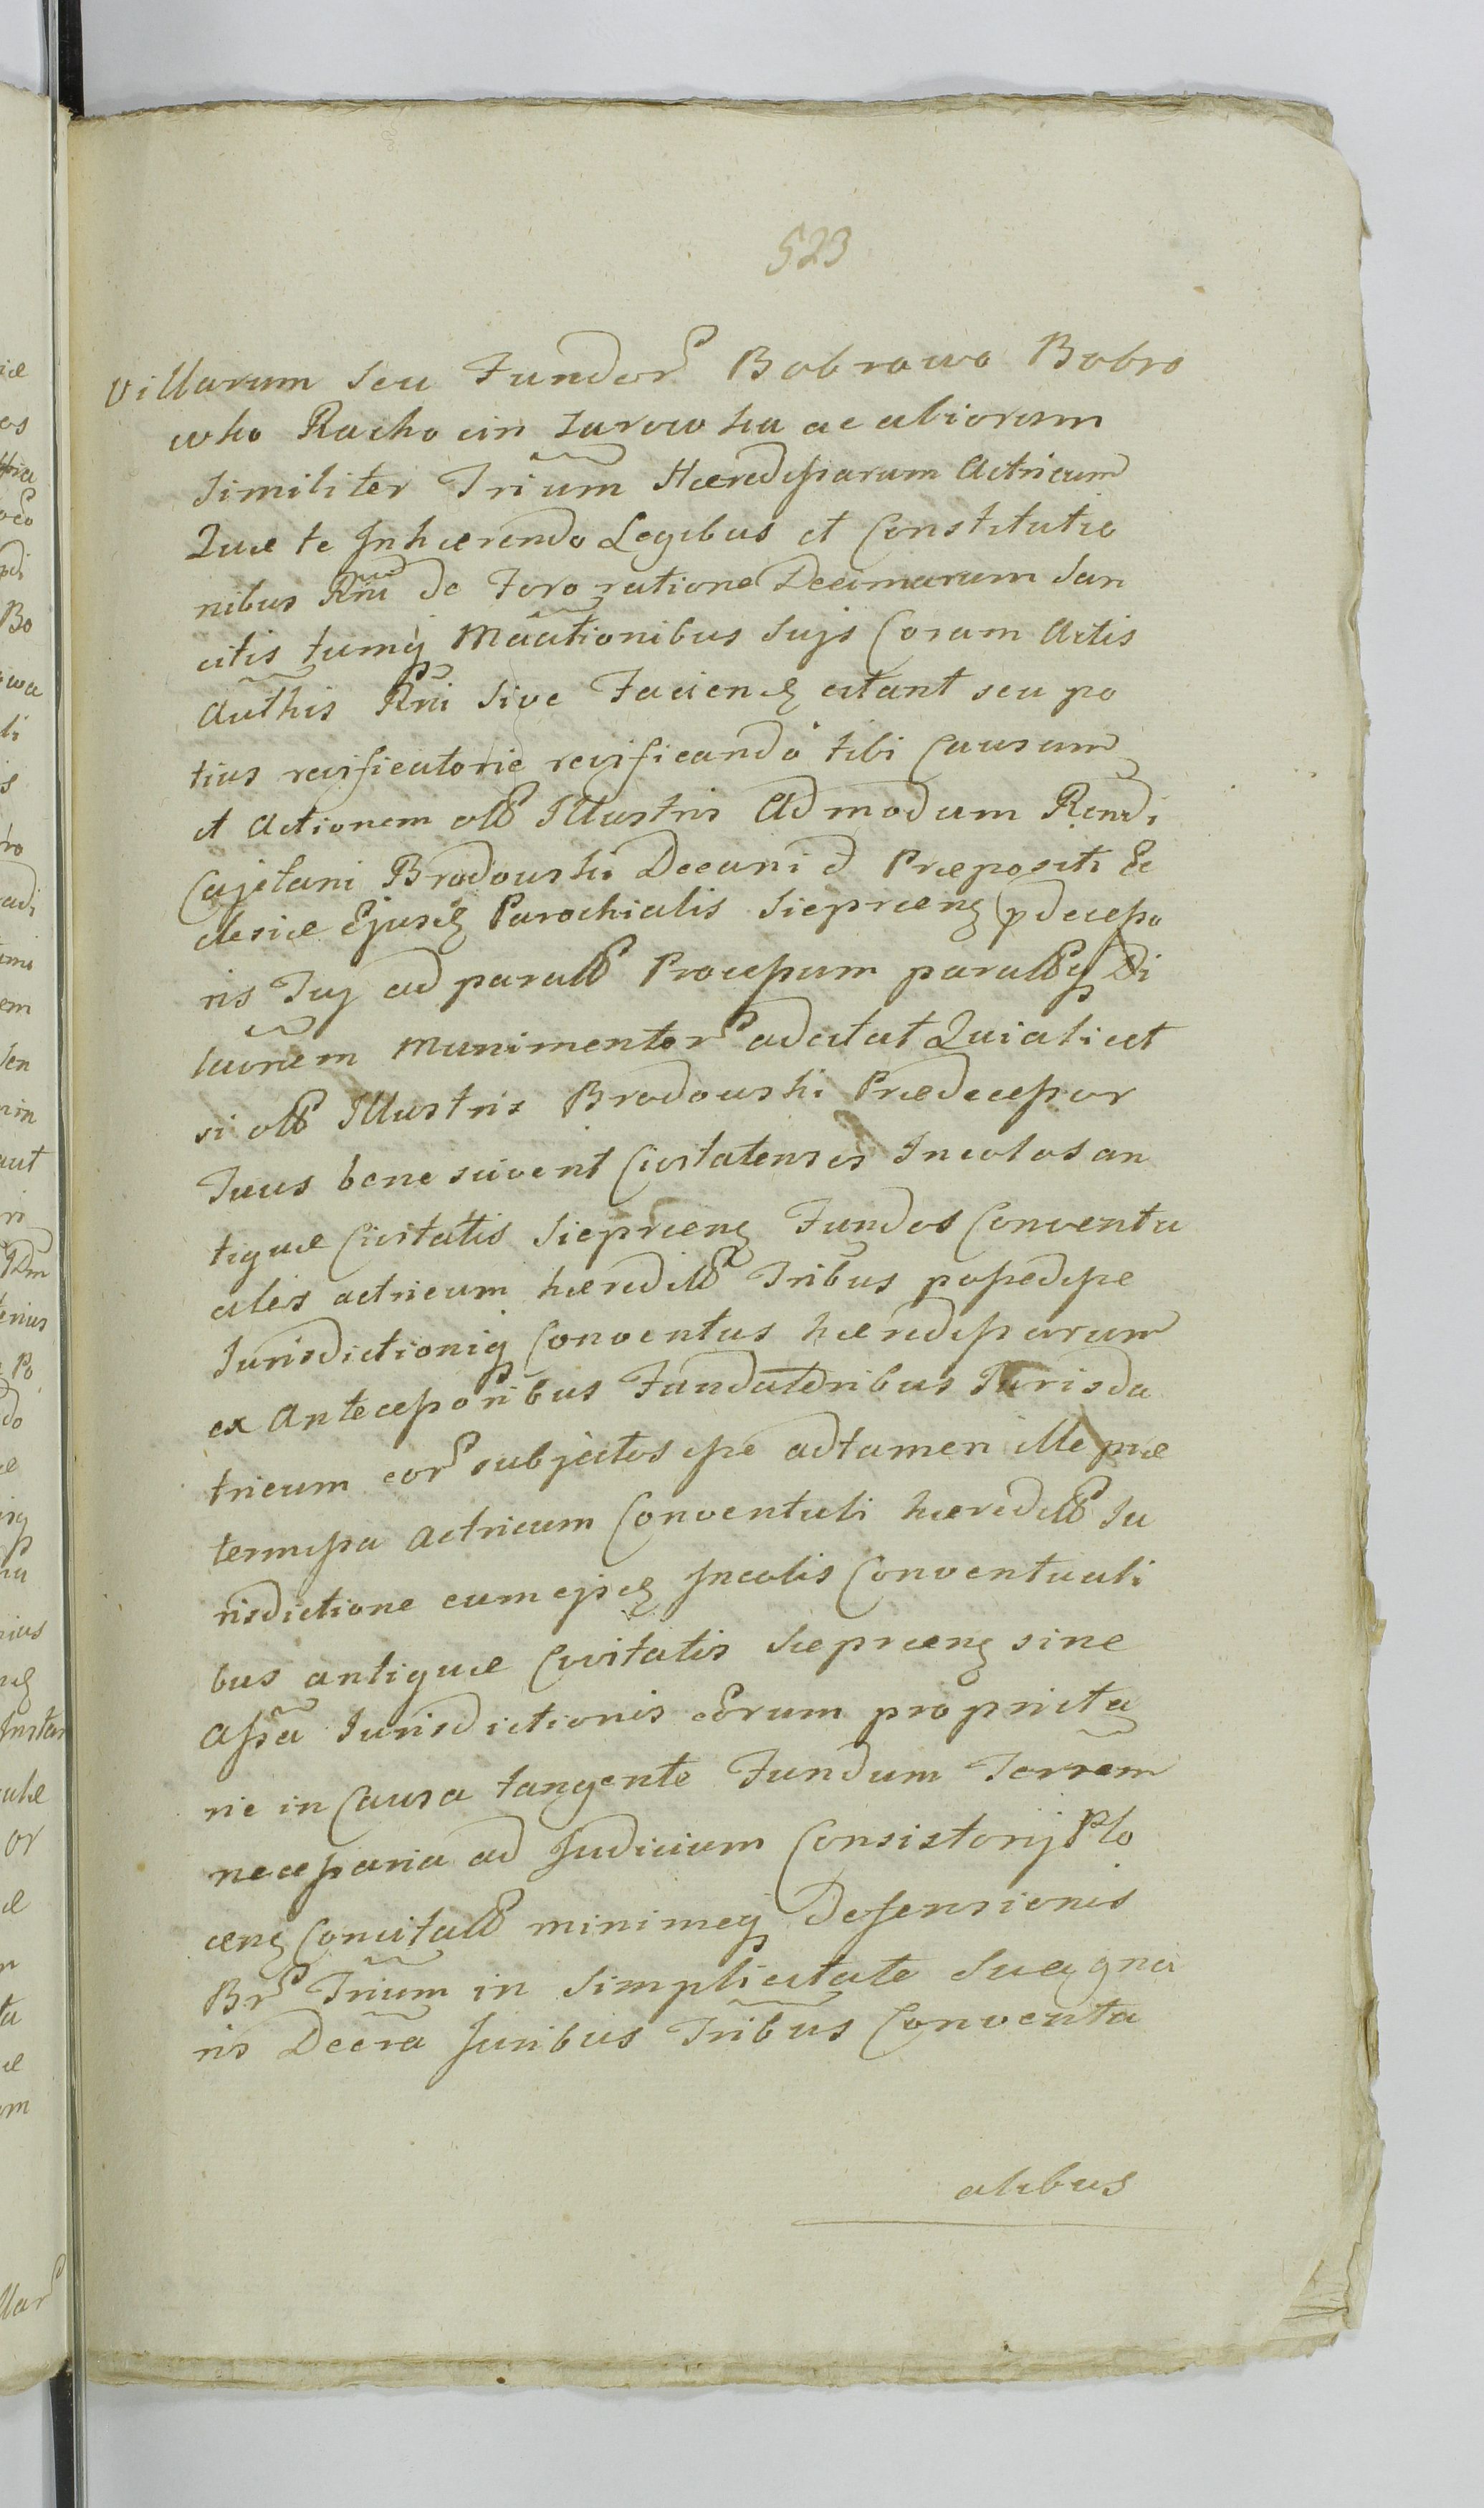 523
Villarum seu Fundor Bobrowo Bobro
wko Racho cin Jarowka ac aliorum
Similiter Trium Hæredissarum Actricum
Quæ te Inhærendo Legibus et Constitutio
nibus Rni de Foro ratione Decimarum San
citis tumq Maãtionibus Sujs Coram Actis
Authis Rni Sive Facienđ citant seu po
tius reussicatorie reussicando tibi Causam
et Actionem olb Illustris Admodum Rendi
Cajetani Brodowski Decani đ Præpositi Ec
clesiæ Ejusđ Parochialis Siepræng pdecesso
ris Tuj ad paralb Processum paralbq Di
laonem Munimentor adcitat Quia licet
si olb Illustris Brodowski Prædecessor
Tuus bene sciverit Civitatenses Incolas an
tiquæ Civitatis Siepræng Fundos Conventu
ales actricum hæredilb Tribus possedisse
Jurisdictioniq Conventus hæredissarum
ex Antecessoribus Fundatoribus Jurisda
tricum eor subjectos esse adtamen ille præ
termissa Actricum Conventuli hæredilb Ju
risdictione cum ejsđ Incolis Conventuali
bus antiquæ Civitatis Siepræng sine
Assa Jurisdictionis Eorum proprieta
rie in Causa tangente Fundum Terrem
necessaria ad Judicium Consistorij Plo
ceng Concitalb minimeq Defensionis
Br Trium in Simplicitate Sua gna
ris Decra Juribus Tribus Conventu
alibus